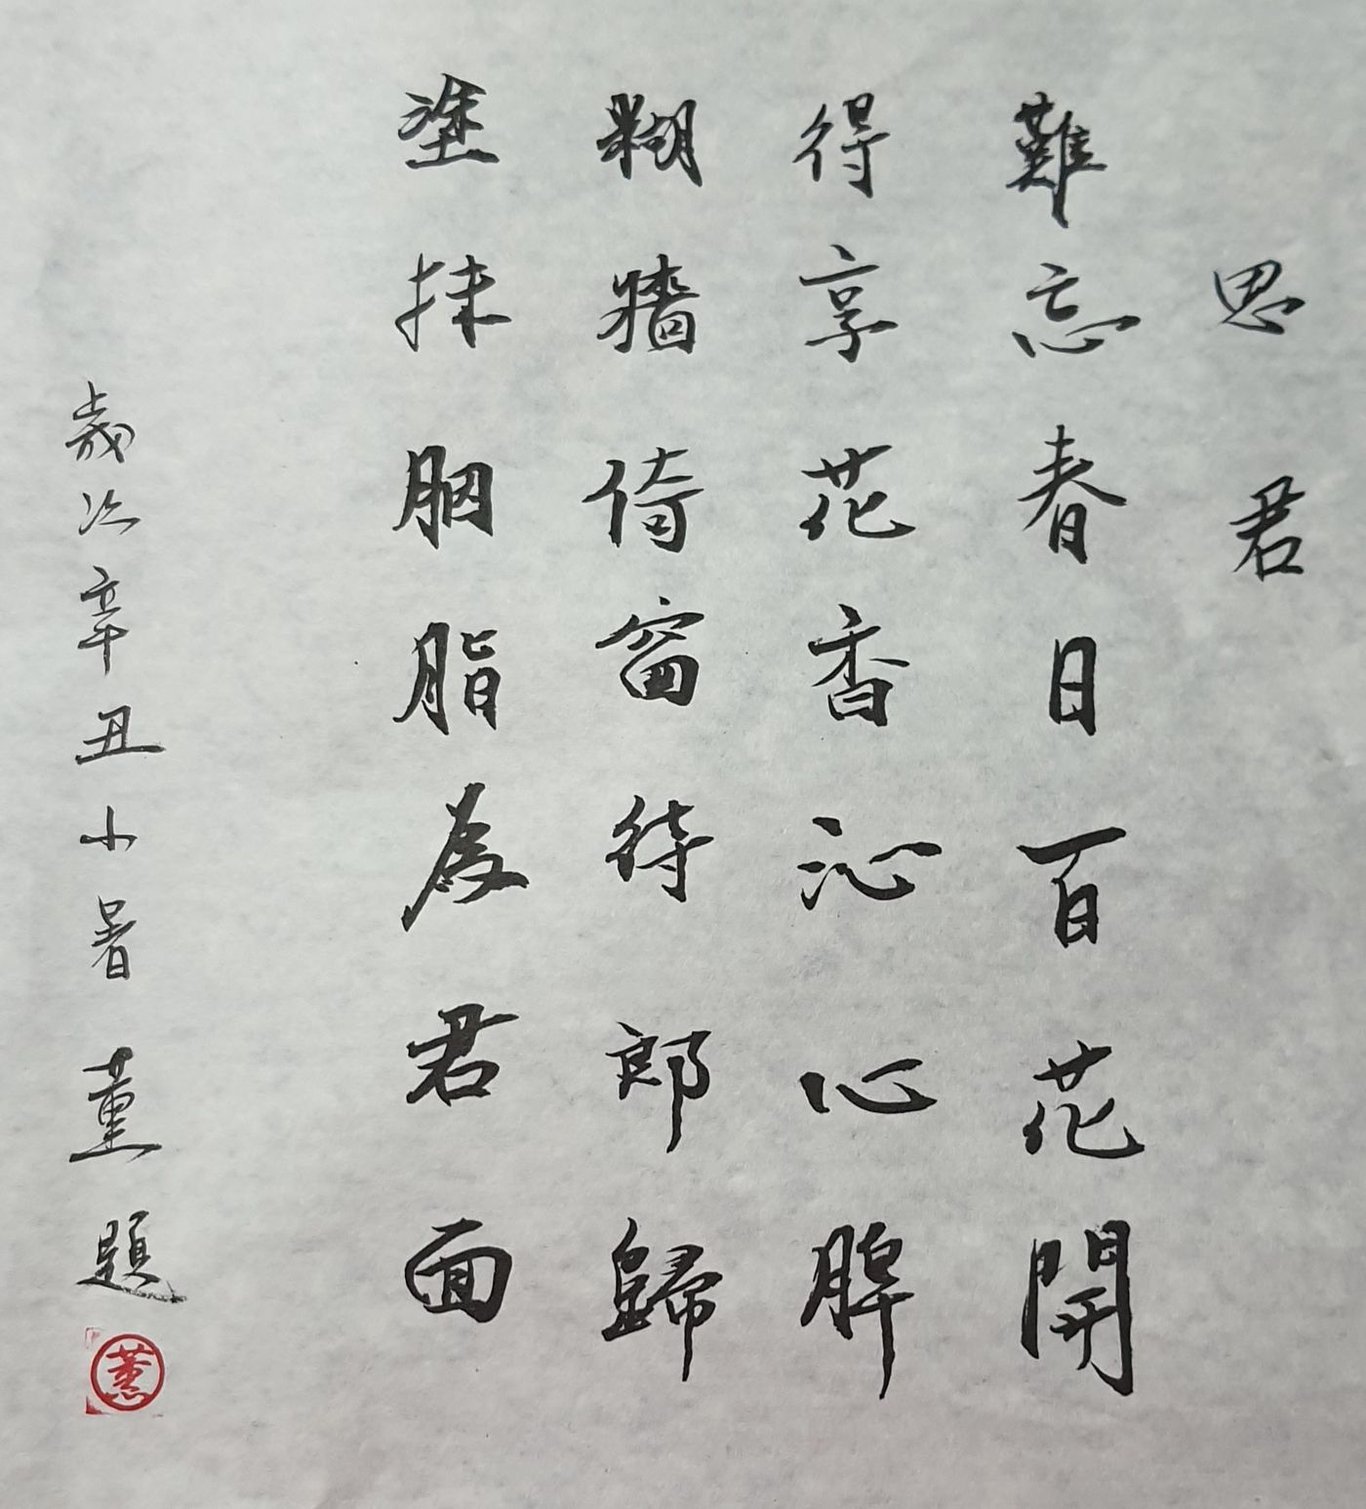 思君
難忘春日百花開
得享花香沁心脾
糊牆倚窗待郎歸
塗抹胭脂為君面
歲次辛丑小暑 薰題
薰